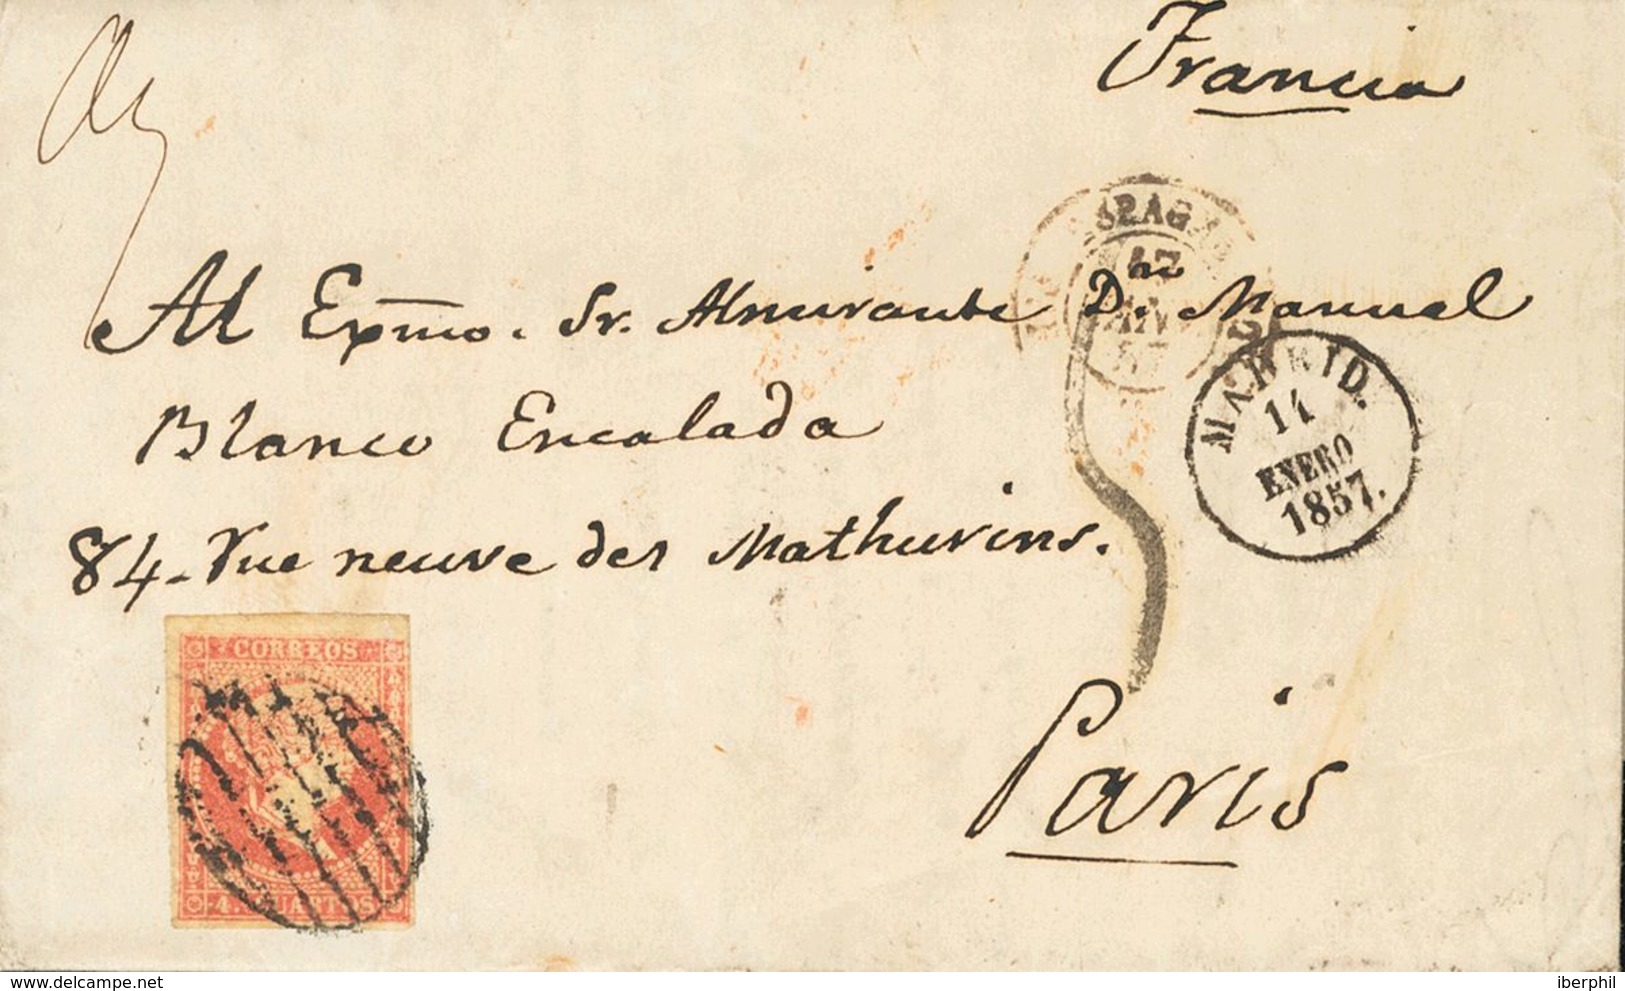 Francia
ESPAGNE
17
Al Exmo. Sr. Almirante Dn. Manuel
MADRID.
14
ENERO
1857.
Blanco Encalada
84-rue neuve des Mathurins.
Paris
CORREOS
4. CUARTOS
delcampe.net
iberphil